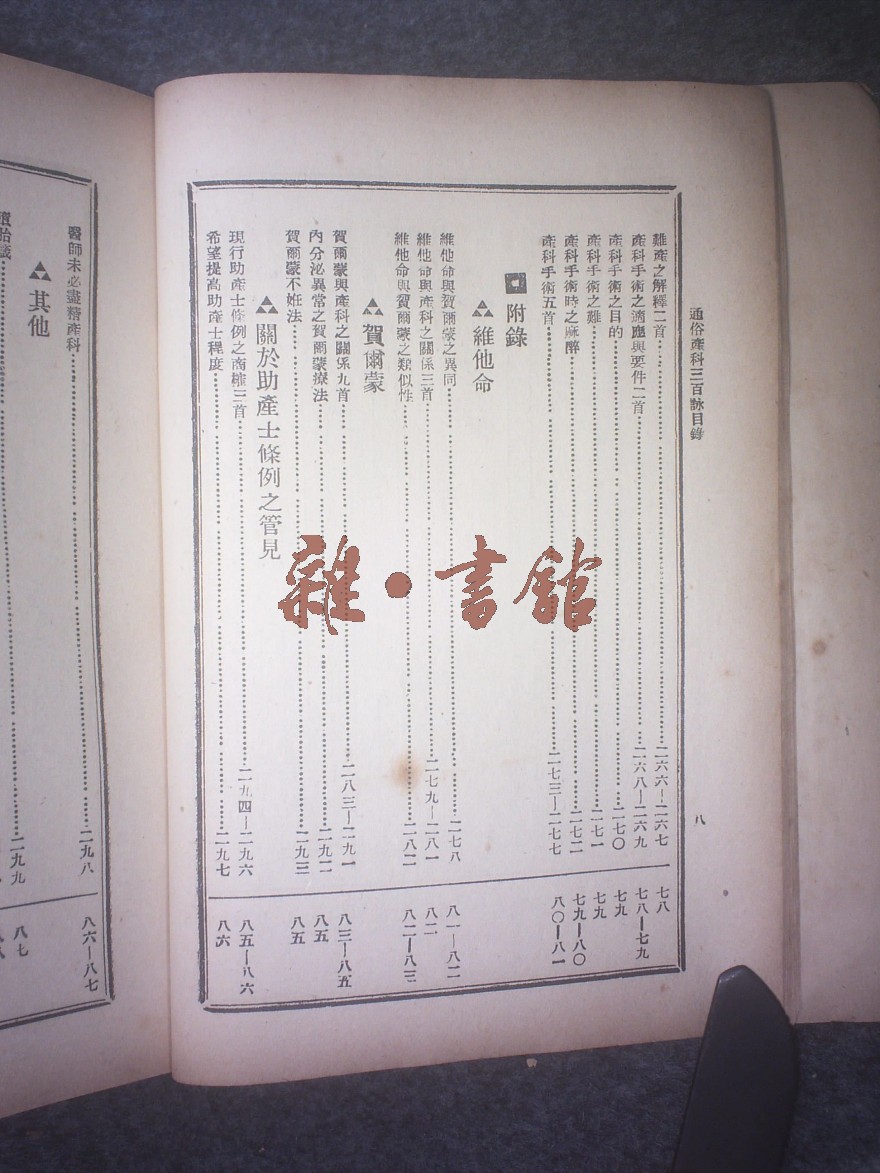 通俗產科三百詠目錄
八
難產之解釋二首 二六六—二六七 七八
產科手術之適應與要件二首 二六八—二六九 七八—七九
產科手術之目的 二七〇 七九
產科手術之難 二七一 七九
產科手術時之麻醉 二七二 七九—八〇
產科手術五首 二七三—二七七 八〇—八一
附錄
維他命
維他命與賀爾蒙之異同 二七八 八一—八二
維他命與產科之關係三首 二七九—二八一 八二
維他命與賀爾蒙之類似性 二八二 八二—八三
賀爾蒙
賀爾蒙與產科之關係九首 二八三—二九一 八三—八五
內分泌異常之賀爾蒙療法 二九二 八五
賀爾蒙不妊法 二九三 八五
關於助產士條例之管見
現行助產士條例之商榷三首 二九四—二九六 八五—八六
希望提高助產士程度 二九七 八六
醫師未必盡精產科 二九八 八六—八七
其他
二九九 八七
雜·書館